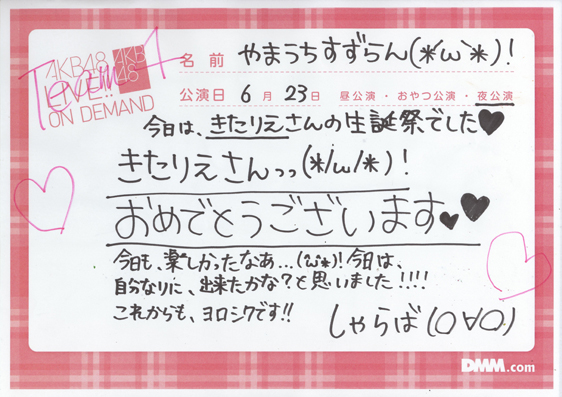 AKB48 AKB48
LIVE!!
ON DEMAND
Team 4
名前 やまうちすずらん(*´ω`*)!
公演日 6月23日 昼公演・おやつ公演・夜公演
今日は、きたりえさんの生誕祭でした♥
きたりえさんっっ(*/ω/*)!
おめでとうございます♥♥
今日も、楽しかったなあ...(´ω`*)!今日は、
自分なりに、出来たかな?と思いました!!!!
これからも、ヨロシクです!!
しゃらば(〇∀〇)
DMM.com